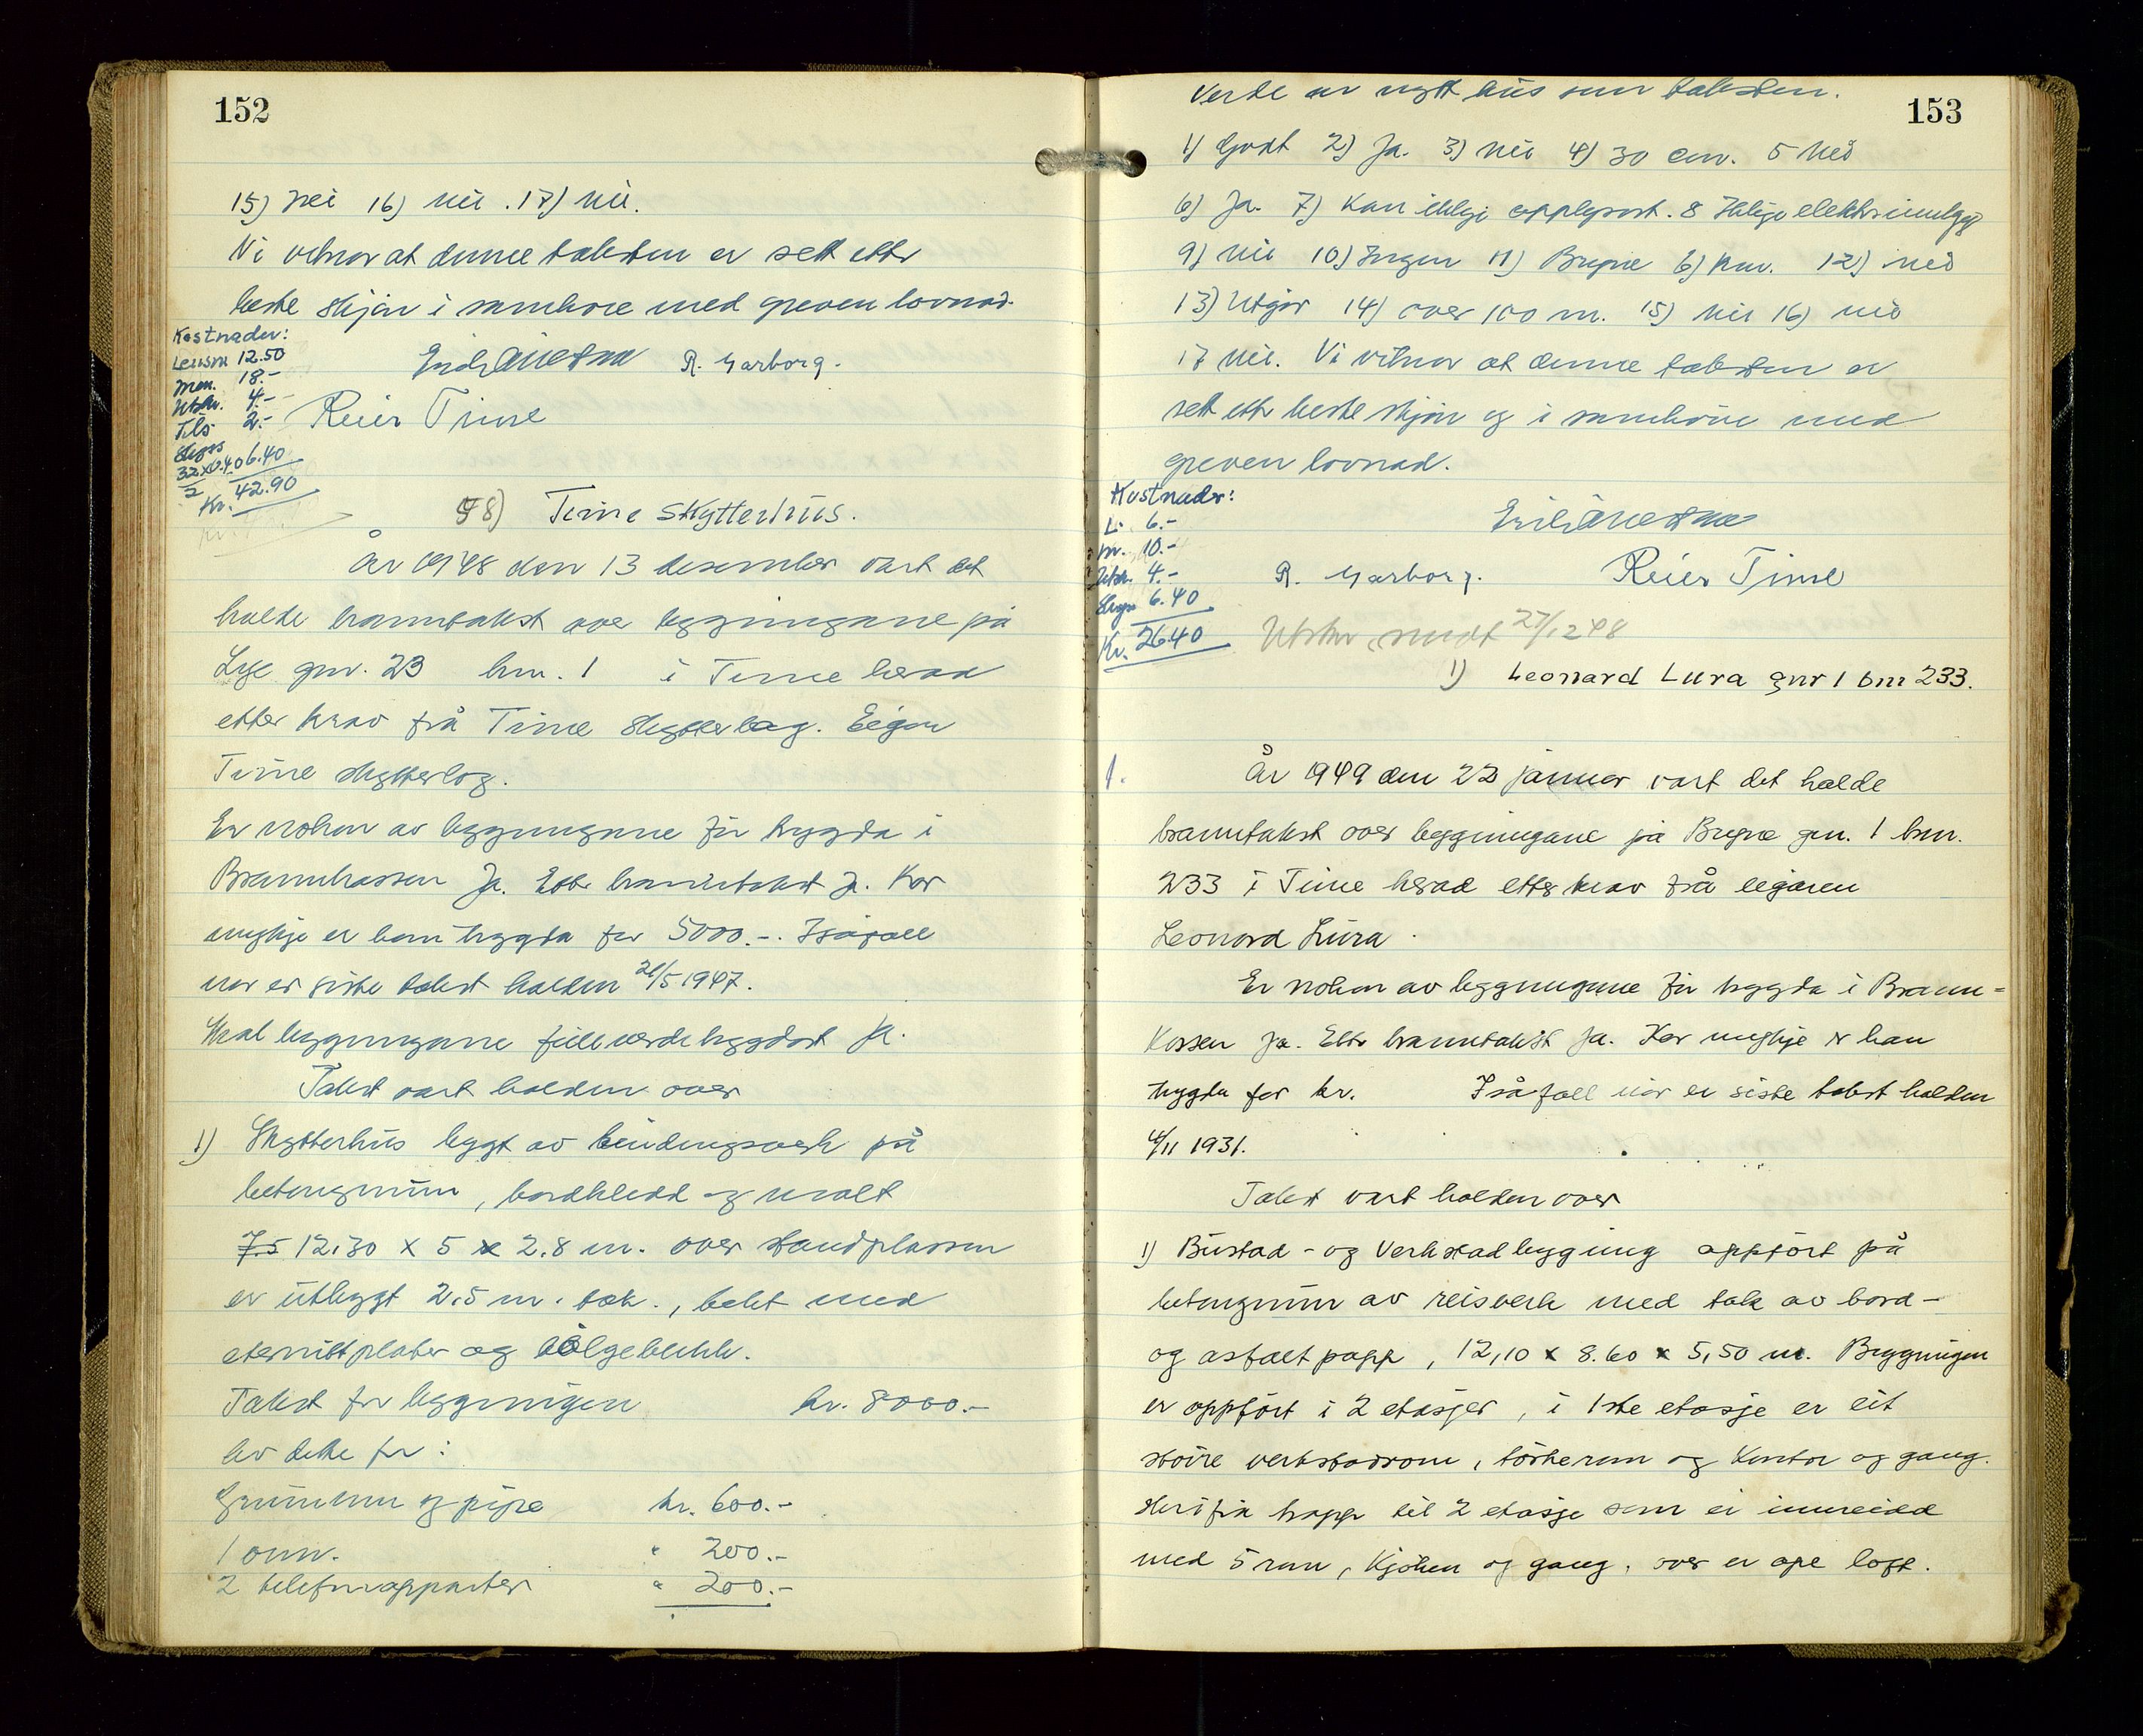 152
15) Nei 16) Nei. 17) Nei.
Vi vitnar at denne taksten er sett etter
beste skjøn i samhøve med greven lovnad.
Kostnader:
Lensm 12.50
Men. 18.-
Utskr. 4.-
Tils 2.-
Skyss
32x0.40 6.40
2
Kr. 42.90
R. Garborg.
Reier Time
48) Time Skytterhus.
År 1948 den 13 desember vart det
halde branntakst over byggningane på
Lye gnr. 23 bnr. 1 i Time herad
etter krav frå Time Skytterlag. Eigar
Time skytterlag.
Er nokon av byggningane før trygda i
Brannkassen Ja. Etter branntakst Ja. Kor
mykje er ham trygda for 5000.-. Isåfall
når er siste takst halden 21/5 1947.
Skal byggningane fullverdetrygdast Ja.
Takst vart halden over
1) Skytterhus bygt av bindingsverk på
betongmur, bordkledd og malt
7.5 12,30 x 5 x 2.8 m. over standplassen
er utbygt 2,5 m. tak., tekt med
eternittplater og bølgeblikk.
Takst for byggningen kr. 8000.-
Av dette for:
Grunnmur og pipe kr. 600.-
1 omn. " 200.-
2 telefonapparater " 200.-
153
Verde av nytt hus som taksten.
1) Godt 2) Ja. 3) Nei 4) 30 cm. 5 Nei
6) Ja. 7) Kan ikkje opplysast. 8 Ikkje elektr innlegg
9) Nei 10) Ingen 11) Bryne 6) km. 12) nei
13) Utgår 14) over 100 m. 15) Nei 16) nei
17 Nei. Vi vitnar at denne taksten er
sett etter beste skjøn og i samhøve med
greven lovnad.
Kostnader:
L. 6.-
M. 10.-
Utskr. 4.-
Skyss 6.40
Kr. 26.40
R. Garborg. Reier Time
Utskr. sendt 27/12 48
1) Leonard Lura gnr 1 bnr 233.
1. År 1949 den 22 januar vart det halde
branntakst over byggningane på Bryne gnr. 1 bnr.
233 i Time herad etter krav frå eigaren
Leonard Lura.
Er nokon av byggningane før trygda i Brann=
Kassen Ja. Etter branntakst Ja. Kor mykje er han
trygda for kr. Isåfall når er siste takst halden
4/11 1931.
Takst vart halden over
1) Bustad- og Verkstadbygging oppført på
betongmur av reisverk med tak av bord-
og asfaltpapp, 12,10 x 8.60 x 5,50 m. Byggningen
er oppført i 2 etasjer, i 1ste etasje er eit
større verkstadrom, tørkerom og Kontor og gang.
Herifra trapp til 2 etasje som er innreidd
med 5 rom, Kjøken og gang, over er ope loft.